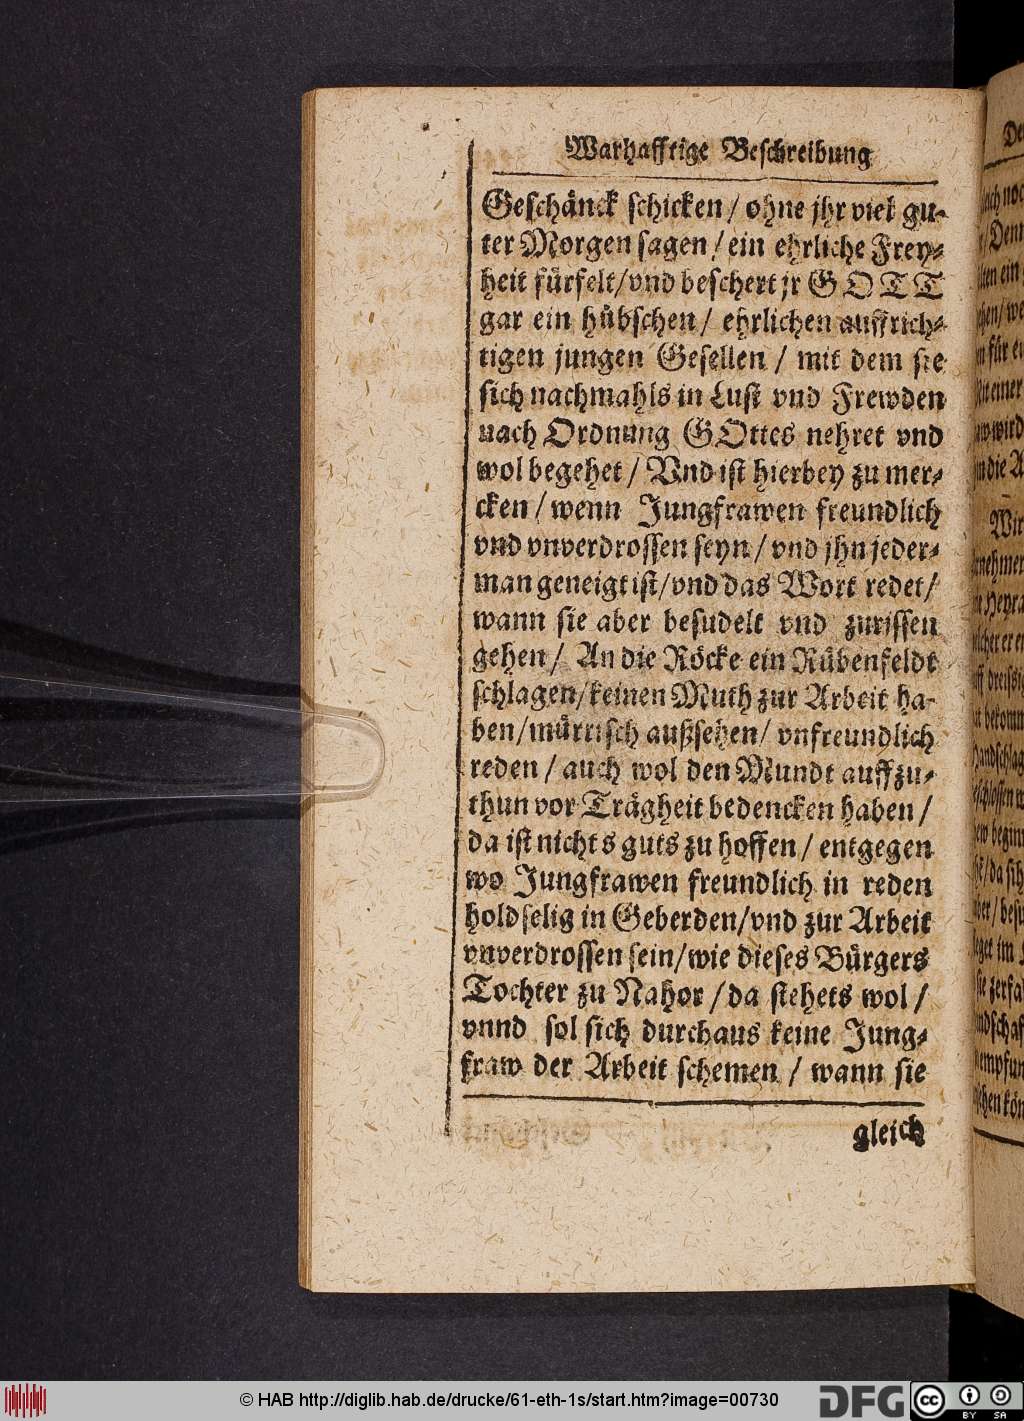 Warhafftige Beschreibung
Geschänck schicken / ohne jhr viel gu-
ter Morgen sagen / ein ehrliche Frey-
heit fürfelt / vnd beschert jr GOTT
gar ein hübschen / ehrlichen auffrich-
tigen jungen Gesellen / mit dem sie
sich nachmahls in Lust vnd Frewden
nach Ordnung GOttes nehret vnd
wol begehet / Vnd ist hierbey zu mer-
cken / wenn Jungfrawen freundlich
vnd vnverdrossen seyn / vnd jhn jeder-
man geneigt ist / vnd das Wort redet /
wann sie aber besudelt vnd zurissen
gehen / An die Röcke ein Rübenfeldt
schlagen / keinen Muth zur Arbeit ha-
ben / mürrisch außsehen / vnfreundlich
reden / auch wol den Mundt auffzu-
thun vor Trägheit bedencken haben /
da ist nichts guts zu hoffen / entgegen
wo Jungfrawen freundlich in reden
holdselig in Geberden / vnd zur Arbeit
vnverdrossen sein / wie dieses Bürgers
Tochter zu Nahor / da stehets wol /
vnnd sol sich durchaus keine Jung-
fraw der Arbeit schemen / wann sie
gleich
© HAB http://diglib.hab.de/drucke/61-eth-1s/start.htm?image=00730
DFG
cc BY SA